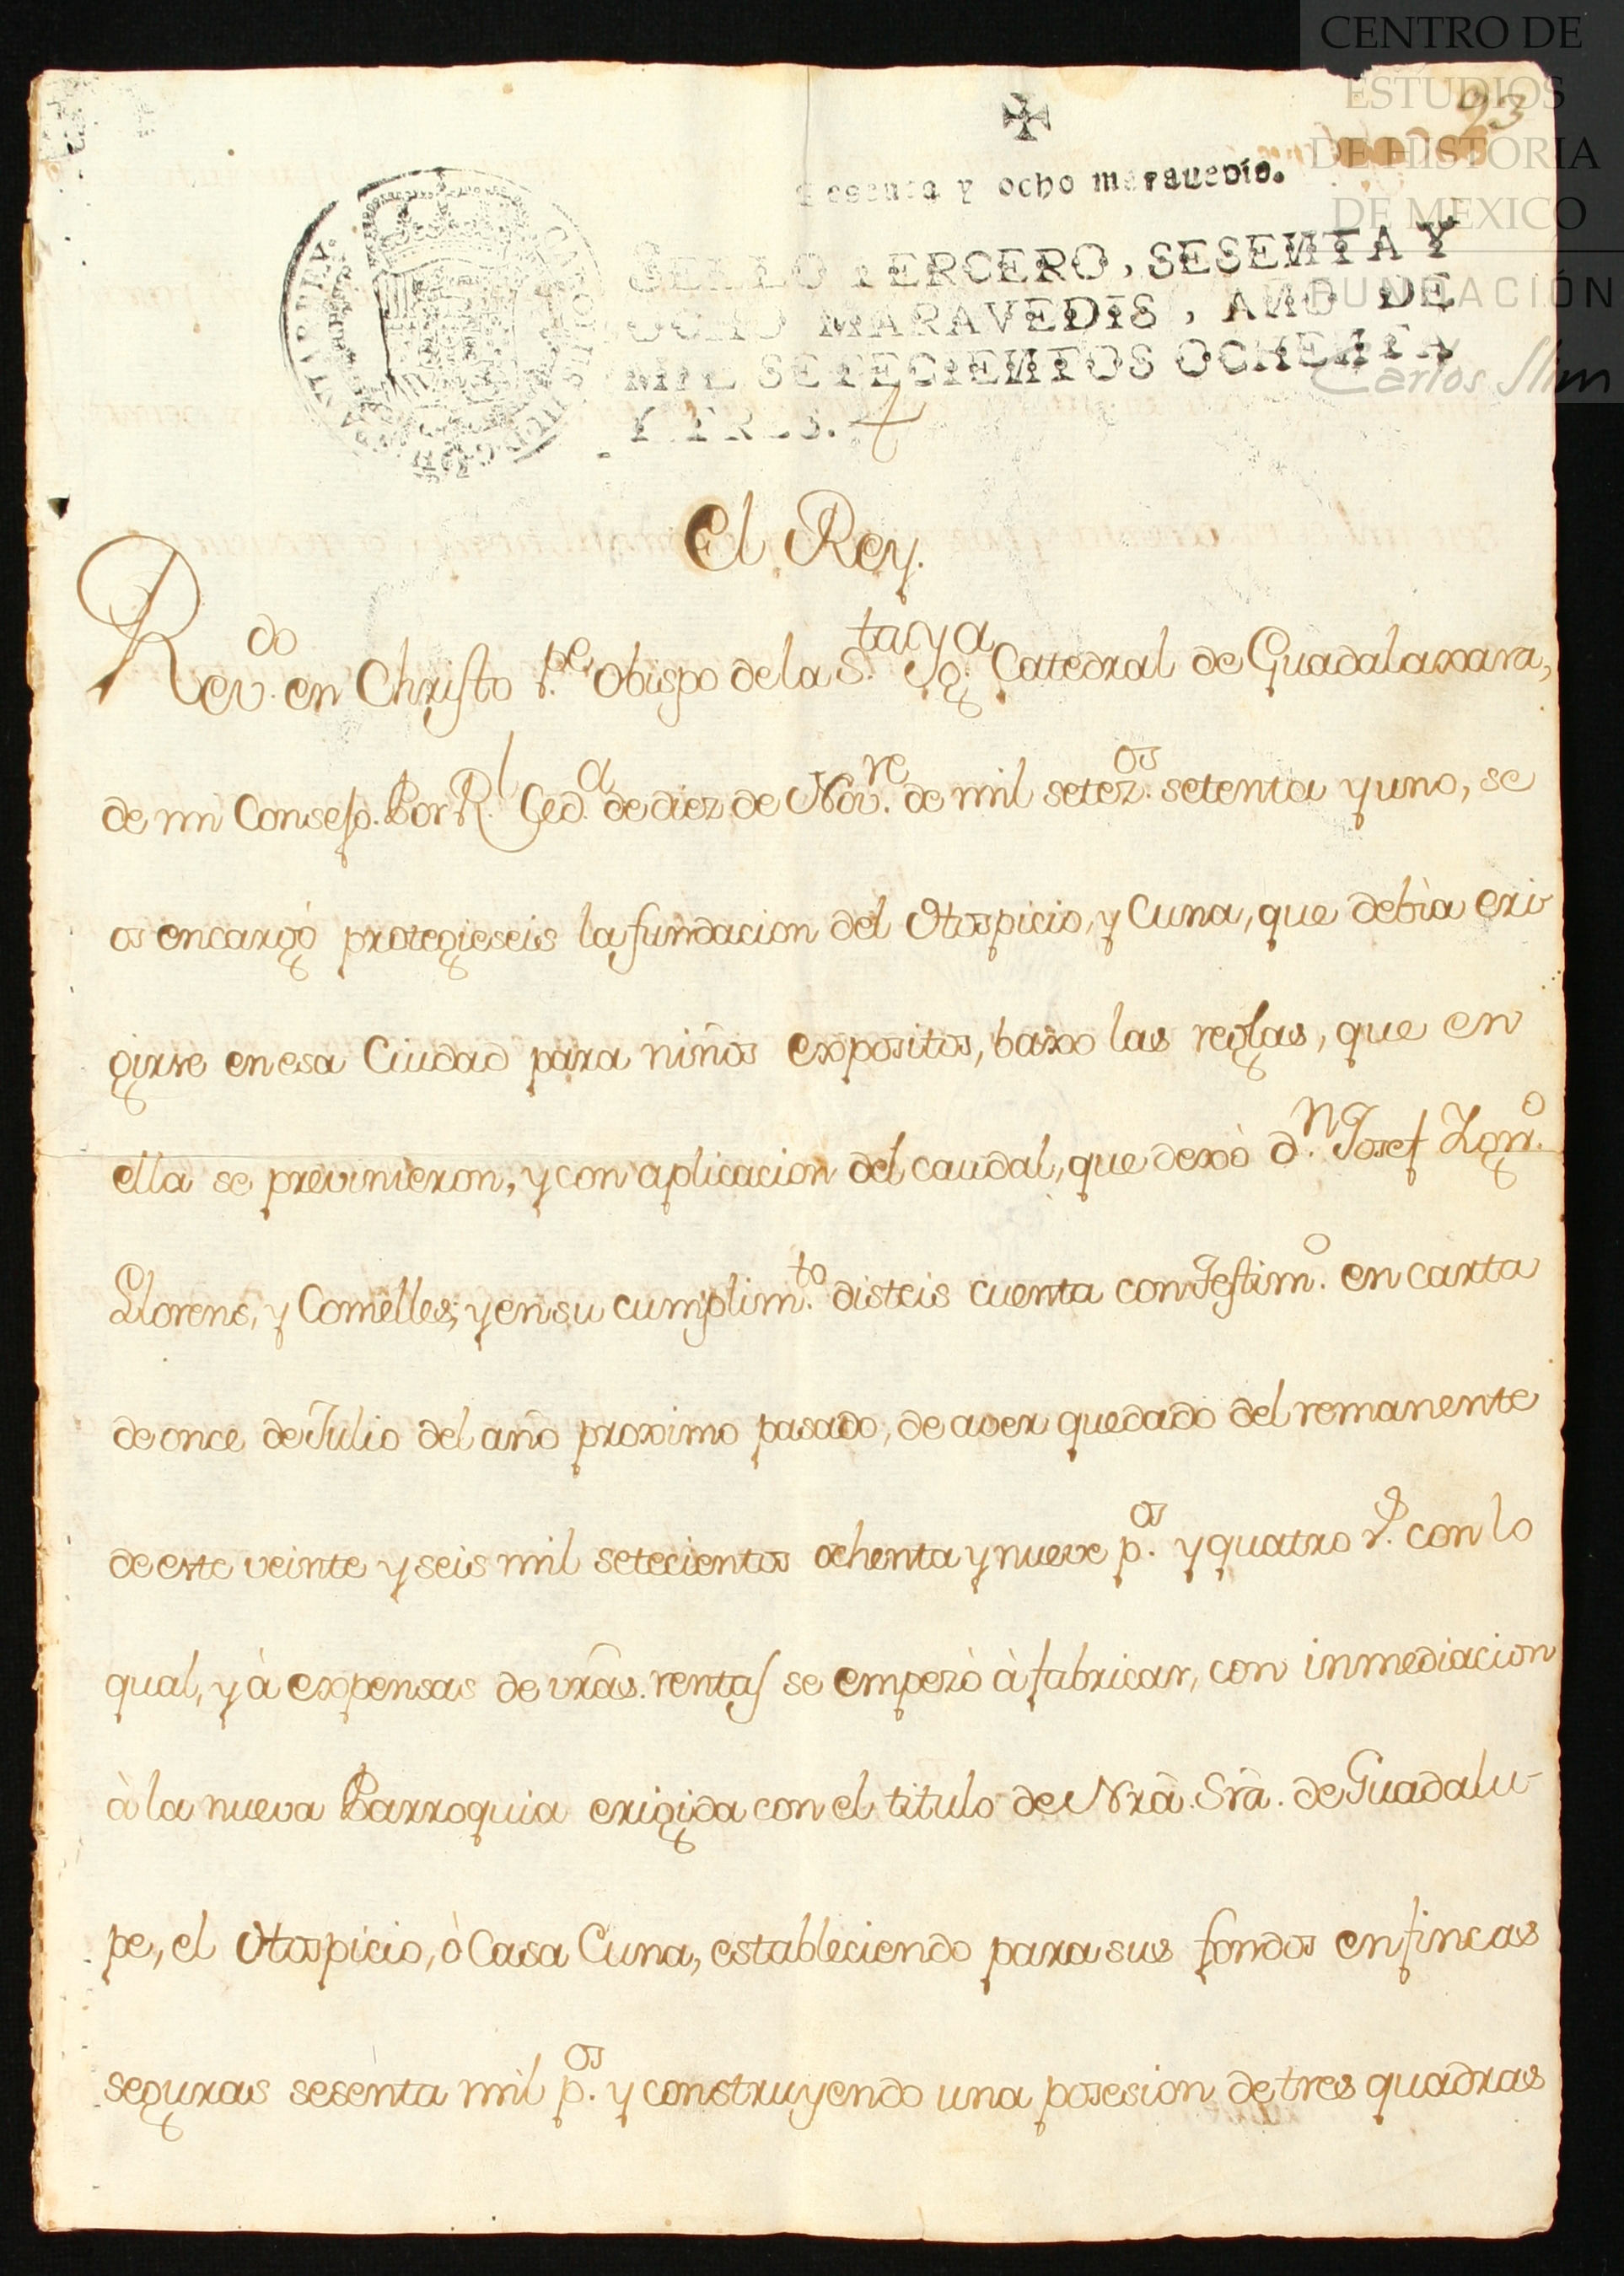 CENTRO DE
ESTUDIOS
DE HISTORIA
DE MEXICO
FUNDACIÓN
Carlos Slim
93
Sesenta y ocho marauedis.
SELLO TERCERO, SESENTA Y
OCHO MARAVEDIS, AÑO DE
MIL SETECIENTOS OCHENTA
Y TRES.
El Rey.
Rev.do en Christo P.e Obispo de la S.ta Yg.a Catedral de Guadalaxara,
de mi Consejo. Por R.l Ced.a de diez de Nov.re de mil setez.os setenta y uno, se
os encargó protegieseis la fundacion del Hospicio, y Cuna, que debìa eri
girse en esa Ciudad para niños expositos, baxo las reglas, que en
ella se previnieron, y con aplicacion del caudal, que dexò d.n Josef Ygn.o
Llorens, y Comelles; y en su cumplim.to disteis cuenta con Testim.o en carta
de once de Julio del año proximo pasado, de aver quedado del remanente
de este veinte y seis mil setecientos ochenta y nueve p.os y quatro r.s con lo
qual, y à expensas de vrãs. rentas se empezò à fabricar, con inmediacion
à la nueva Parroquia erigida con el titulo de Nrã. Srã. de Guadalu-
pe, el Hospicio, ò Casa Cuna, estableciendo para sus fondos en fincas
seguras sesenta mil p.os y construyendo una posesion de tres quadras